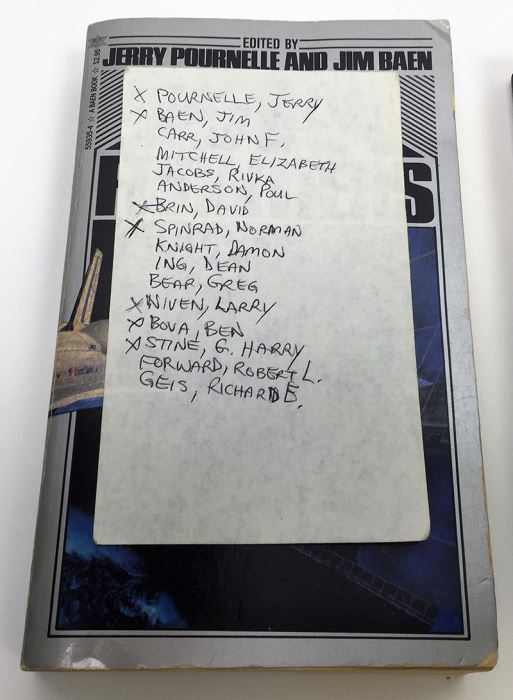 EDITED BY
JERRY POURNELLE AND JIM BAEN
55035-4 ☆ A BAEN BOOK ☆ $2.95
X POURNELLE, JERRY
X BAEN, JIM
CARR, JOHN F.
MITCHELL, ELIZABETH
JACOBS, RIVKA
ANDERSON, POUL
X BRIN, DAVID
X SPINRAD, NORMAN
KNIGHT, DAMON
ING, DEAN
BEAR, GREG
X NIVEN, LARRY
X BOVA, BEN
X STINE, G. HARRY
FORWARD, ROBERT L.
GEIS, RICHARD E.